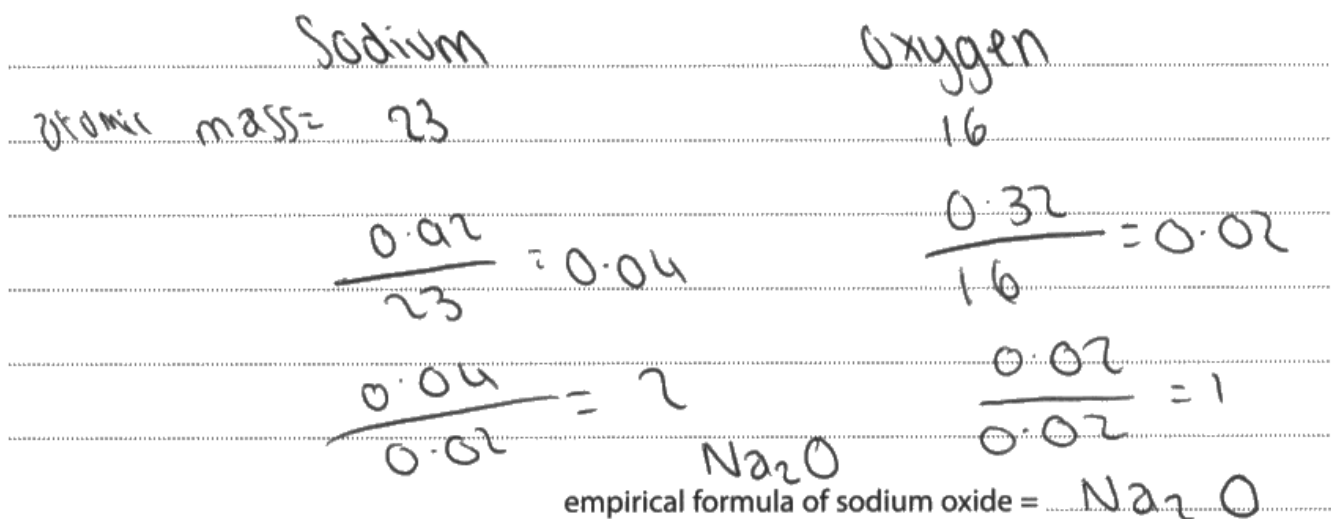 Sodium Oxygen
atomic mass= 23 16
0.92/23 = 0.04 0.32/16 = 0.02
0.04/0.02 = 2 0.02/0.02 = 1
Na₂O
empirical formula of sodium oxide = Na₂O